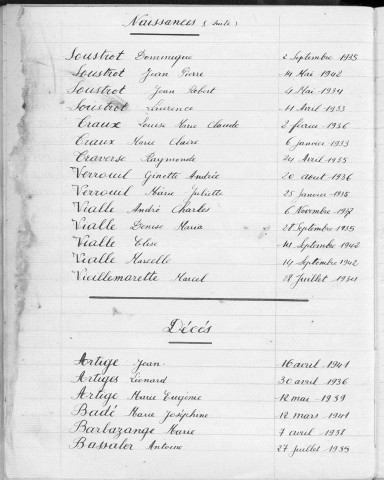 Naissances (suite)
Soustrot Dominique 2 Septembre 1935
Soustrot Jean Pierre 14 Mai 1942
Soustrot Jean Robert 4 Mai 1934
Soustrot Laurence 11 Avril 1933
Craux Louise Marie Claude 2 février 1936
Craux Marie Claire 6 janvier 1933
Craverse Raymonde 24 Avril 1935
Verroeuil Ginette Andrée 20 août 1936
Verroeuil Marie Juliette 25 janvier 1938
Vialle André Charles 6 Novembre
Vialle Denise Maria 28 Septembre 1935
Vialle Elise 14 Septembre 1942
Vialle Marcelle 14 Septembre 1942
Vieillemarette Marcel 18 Juillet 1934
Décés
Artige Jean 16 avril 1941
Artiges Léonard 30 avril 1936
Artige Marie Eugénie 12 mai 1939
Badé Marie Joséphine 12 mars 1941
Barbazange Marie 7 avril 1938
Bassaler Antoine 27 juillet 1935